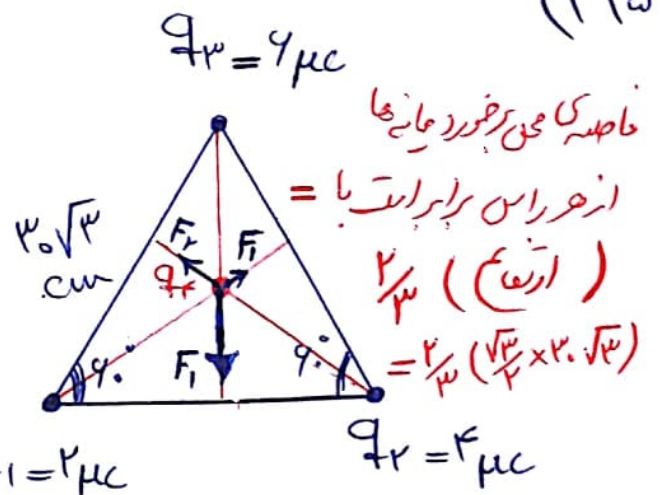 q۳ = ۶μc
فاصله‌ی محل برخورد میانه‌ها
از هر راس برابر است با =
۲/۳ (ارتفاع)
= ۲/۳ (√۳/۲ × ۳۰√۳)
۳۰√۳
cm
F۲
F۱
q۴
۶۰°
F۱
۶۰°
۱ = ۲μc
q۲ = ۴μc